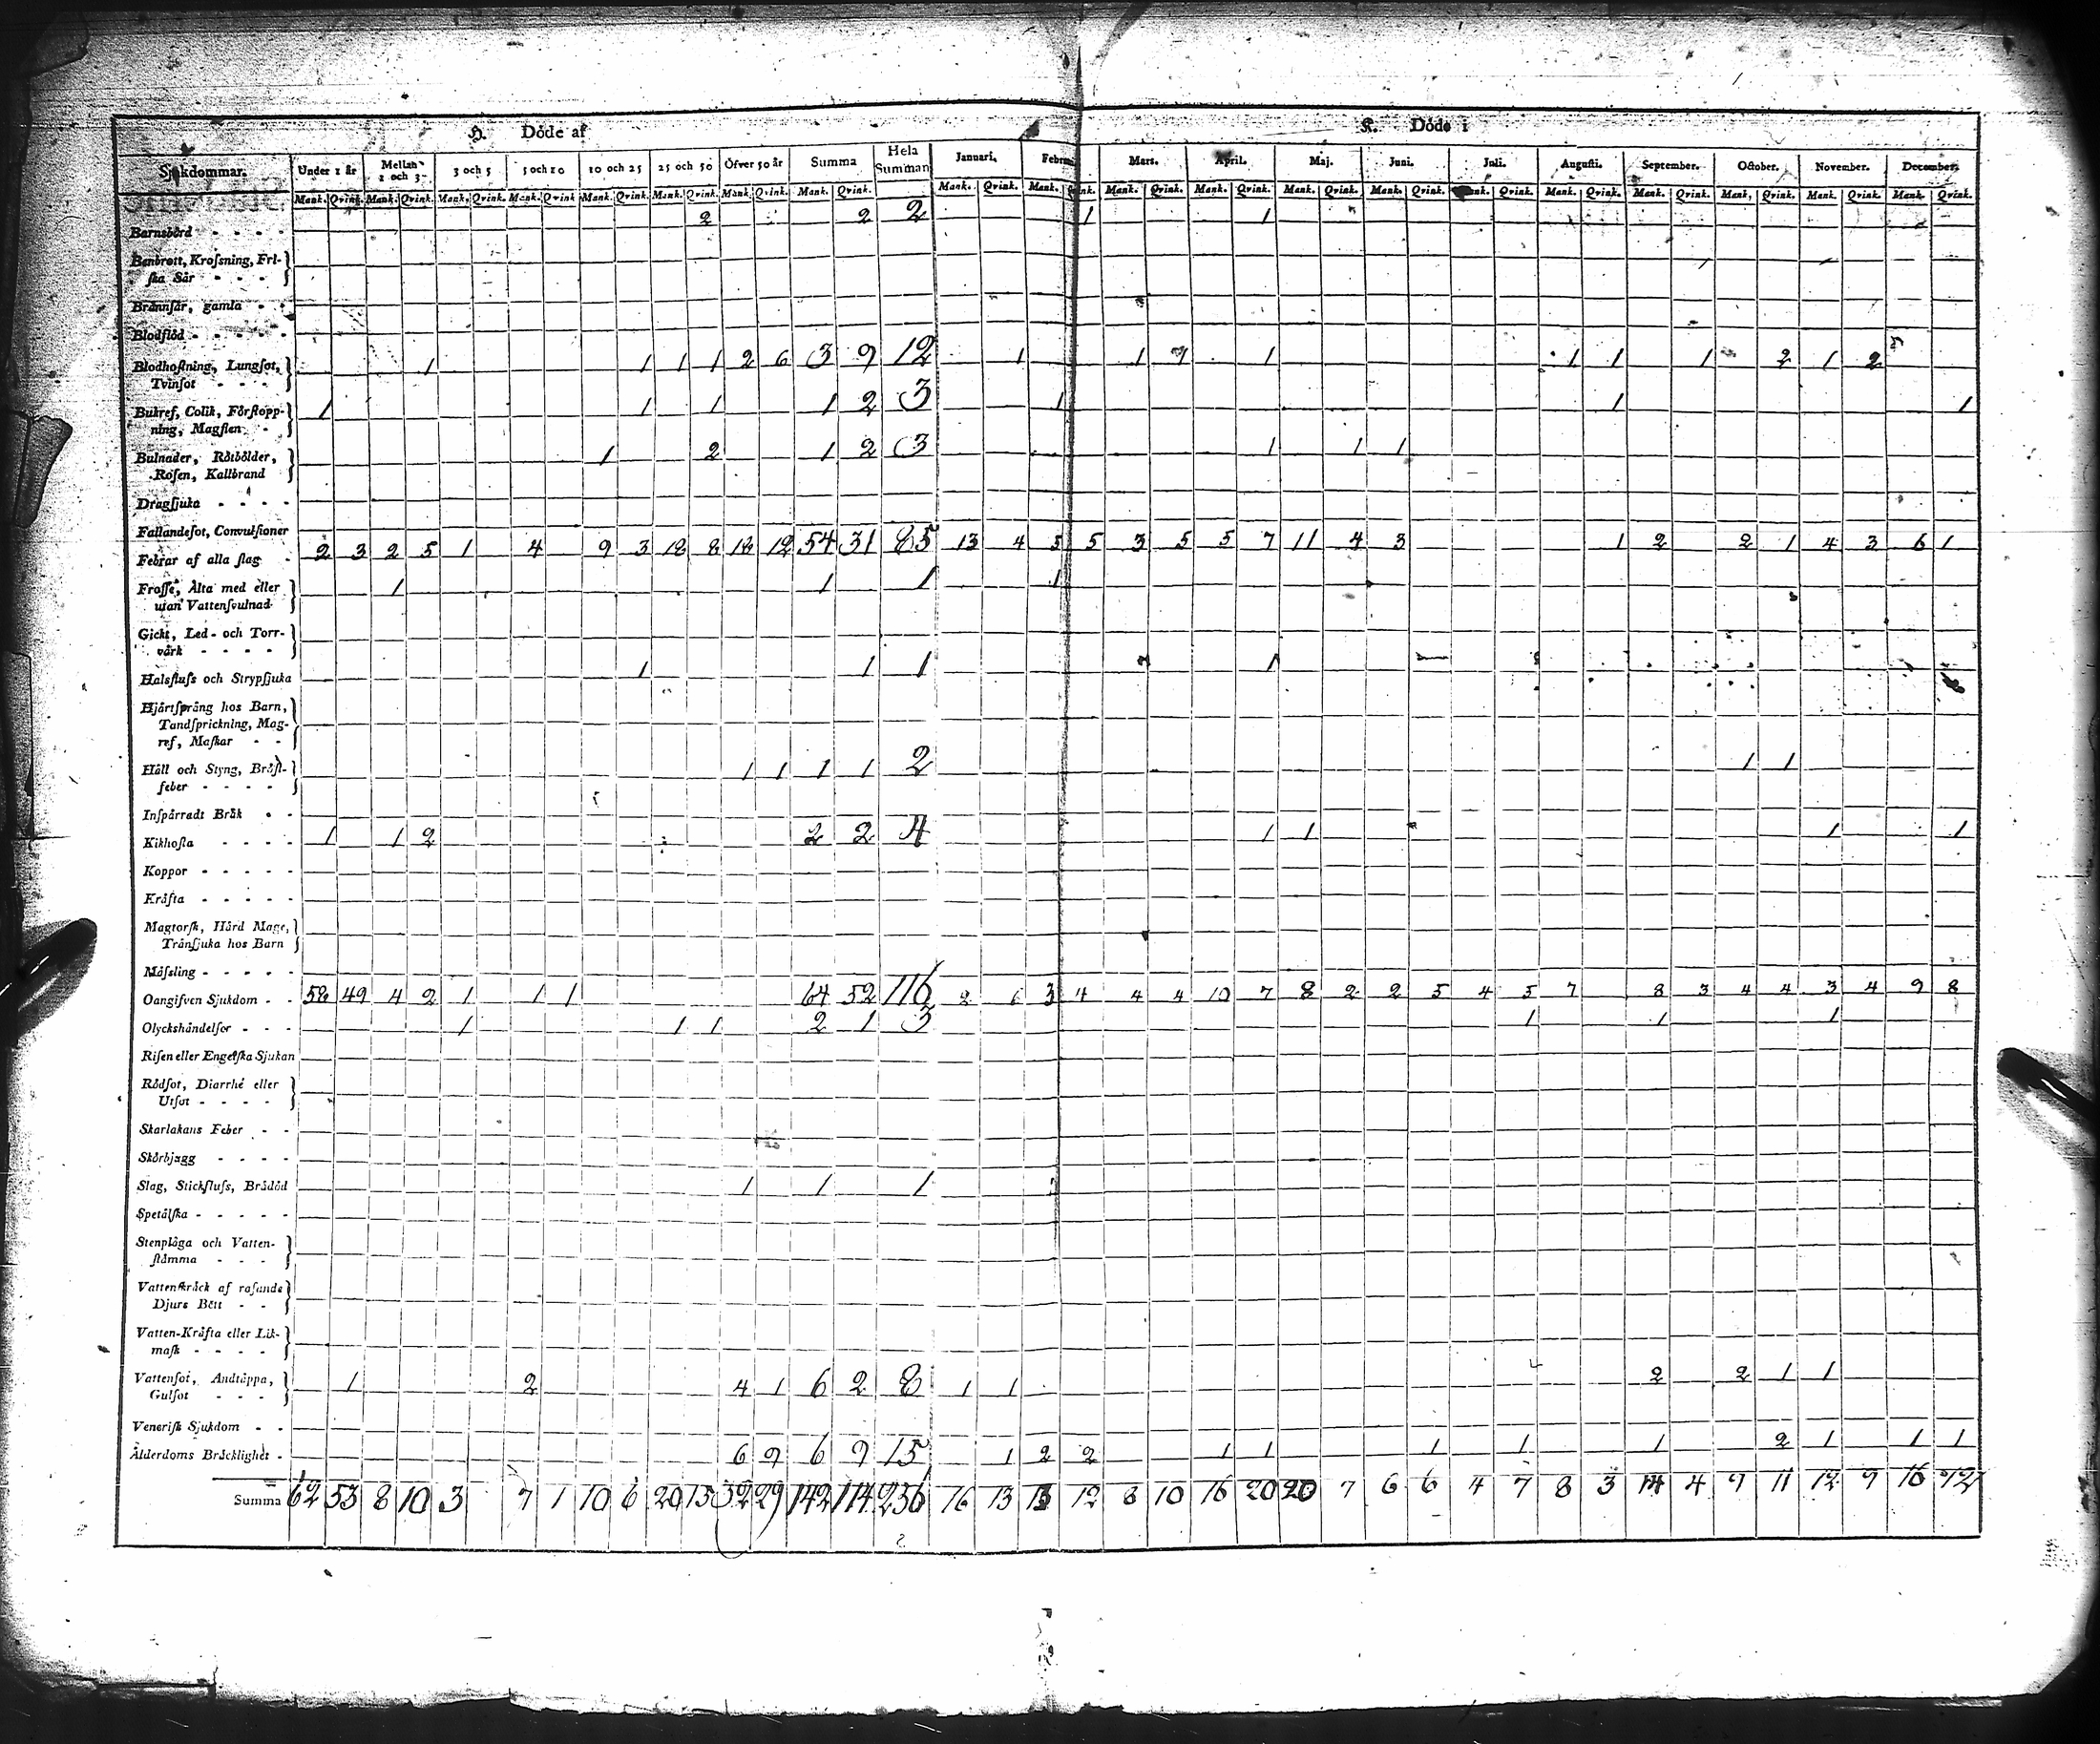 H. Döde af
K. Döde i
Sjukdommar. Under 1 år Mellan 1 och 3 3 och 5 5 och 10 10 och 25 25 och 50 Öfver 50 år Summa Hela Summan Januari. Mars. April. Maj. Juni. Juli. Augusti. September. October. November. December.
Mank. Qvink. Mank. Qvink. Mank. Qvink. Mank. Qvink. Mank. Qvink. Mank. Qvink. Mank. Qvink. Mank. Qvink. Mank. Qvink. Mank. Mank. Qvink. Mank. Qvink. Mank. Qvink. Mank. Qvink. Qvink. Mank. Qvink. Mank. Qvink. Mank. Qvink. Mank. Qvink. Mank. Qvink.
Barnsbörd - - - - 2 2 2 1 1
Benbrott, Krofsning, Fri-
ſka Sår - - - -
Brännſår, gamla - -
Blodflöd - - - - -
Blodhoſtning, Lungſot, 1 1 1 1 2 6 3 9 12 1 1 1 1 1 1 2 1 2
Tvinſot - - - -
Bukref, Colik, Förſtopp- 1 1 1 1 2 3 1 1 1
ning, Magſten -
Bulnader, Rötbölder, 1 2 1 2 3 1 1 1
Roſen, Kallbrand
Dragſjuka - - - -
Fallandeſot, Convulſioner
Febrar af alla ſlag - 2 3 2 5 1 4 9 3 18 8 18 12 54 31 85 13 4 5 5 3 5 5 7 11 4 3 1 2 2 1 4 3 6 1
Froſſe, Älta med eller 1 1 1 1
utan Vattenſvulnad
Gickt, Led- och Torr-
värk - - - -
Halsfluſs och Strypſjuka 1 1 1 1
Hjärtſpräng hos Barn,
Tandſprickning, Mag-
ref, Maſkar - -
Håll och Styng, Bröſt- 1 1 1 1 2 1 1
feber - - - -
Inſpärradt Bråk - -
Kikhoſta - - - - 1 1 2 2 2 4 1 1 1 1
Koppor - - - - -
Kräfta - - - - -
Magtorſk, Hård Mage,
Trånſjuka hos Barn
Mäſsling - - - - -
Oangifven Sjukdom - - 58 49 4 2 1 1 1 64 52 116 2 6 3 4 4 4 10 7 8 2 2 5 4 5 7 8 3 4 4 3 4 9 8
Olyckshändelſer - - - 1 1 1 2 1 3 1 1 1
Riſen eller Engelſka Sjukan
Rödſot, Diarrhé eller
Utſot - - - -
Skarlakans Feber - -
Skörbjugg - - - -
Slag, Stickfluſs, Brådöd 1 1 1
Spetälſka - - - - -
Stenplåga och Vatten-
ſtämma - - -
Vattenſkräck af raſande
Djurs Bett - -
Vatten-Kräfta eller Lik-
maſk - - - -
Vattenſot, Andtäppa, 1 2 4 1 6 2 8 1 1 2 2 1 1
Gulſot - - -
Veneriſk Sjukdom - -
Ålderdoms Bräcklighet - 6 9 6 9 15 1 2 2 1 1 1 1 1 2 1 1 1
Summa 62 53 8 10 3 7 1 10 6 20 15 32 29 142 114 256 16 13 13 12 8 10 16 20 20 7 6 6 4 7 8 3 14 4 9 11 12 9 16 12